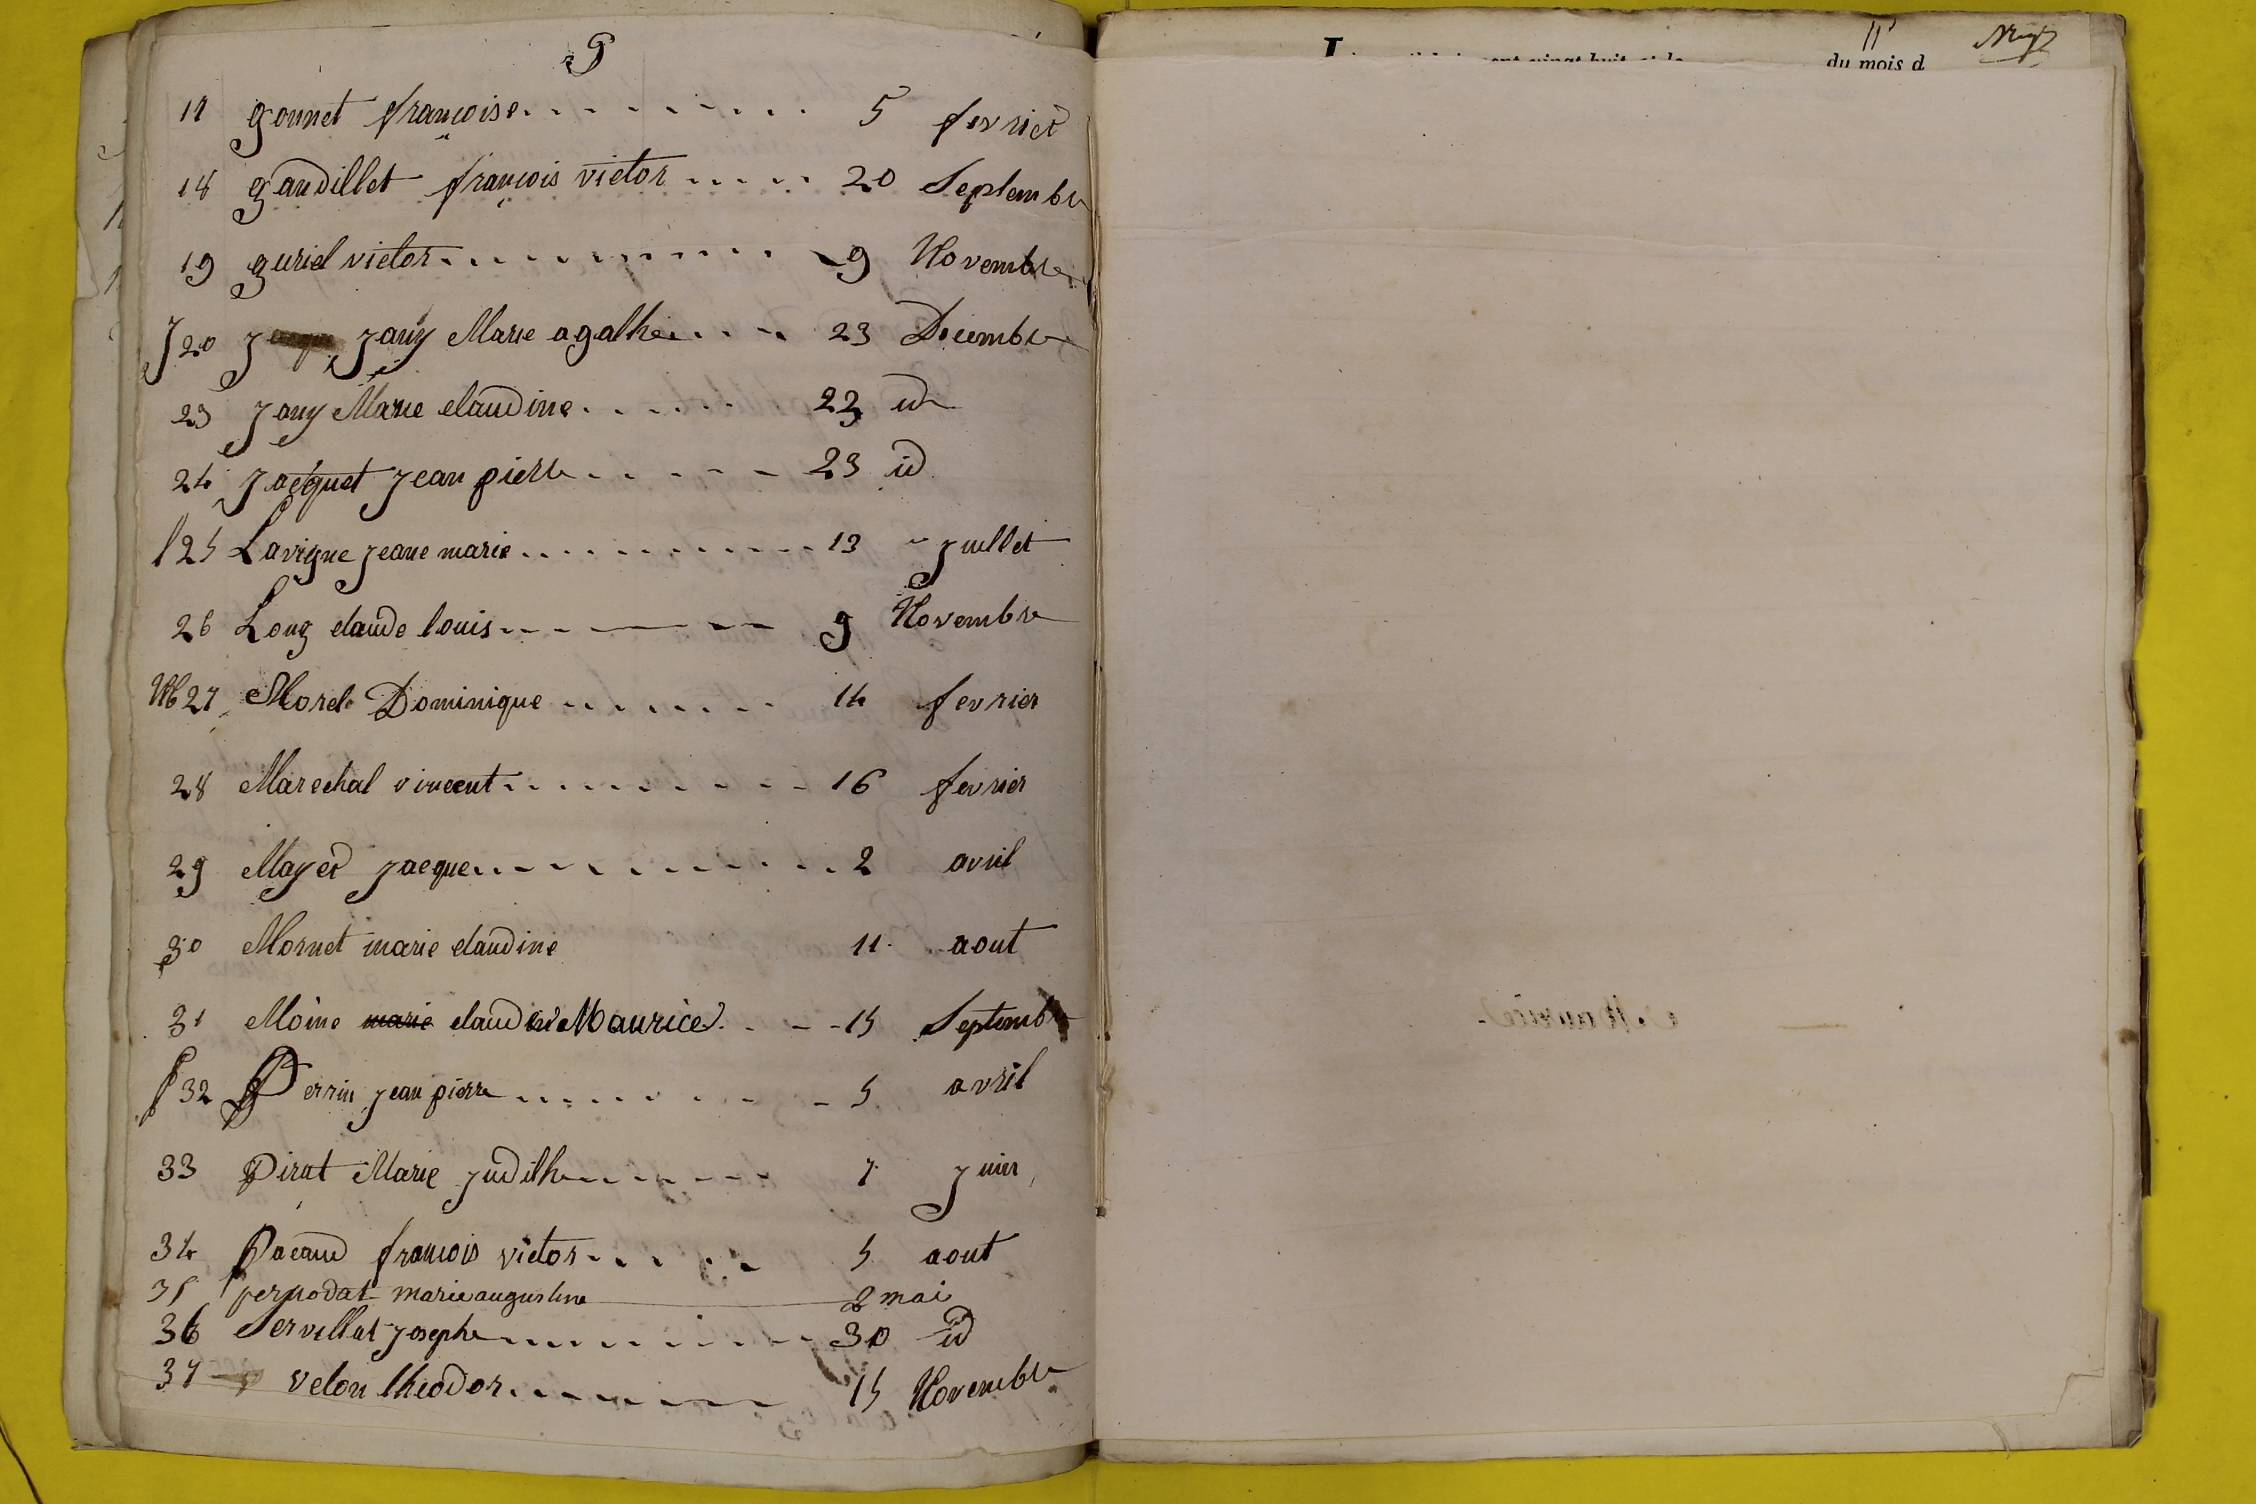 g
17 gonnet françoise......... 5 fevrier
18 gaudillet françois victor..... 20 Septembre
19 guriel victor......... 9 Novembre
J 20 Jany Marie agathe.... 23 Decembre
23 Jany Marie claudine...... 23 id
24 Jacquet Jean pierre..... 23 id
l 25 Lavigne Jeane marie......... 13 Juillet
26 Long claude louis 9 Novembre
M 27 Morel Dominique....... 14 fevrier
28 Marechal vincent........ 16 fevrier
29 Mayer Jacque......... 2 avril
30 Mornet marie claudine 11 aout
31 Moine marie claude Maurice... 15 Septembre
P 32 Perrin Jean pierre....... 5 avril
33 Pirat Marie Judith...... 7
34 Pacaud françois victor..... 5 aout
35 pernodat marie augustine 2 mai
36 Servillat Joseph........ 30 id
37 velon theodor....... 15 Novembre
11
du mois d